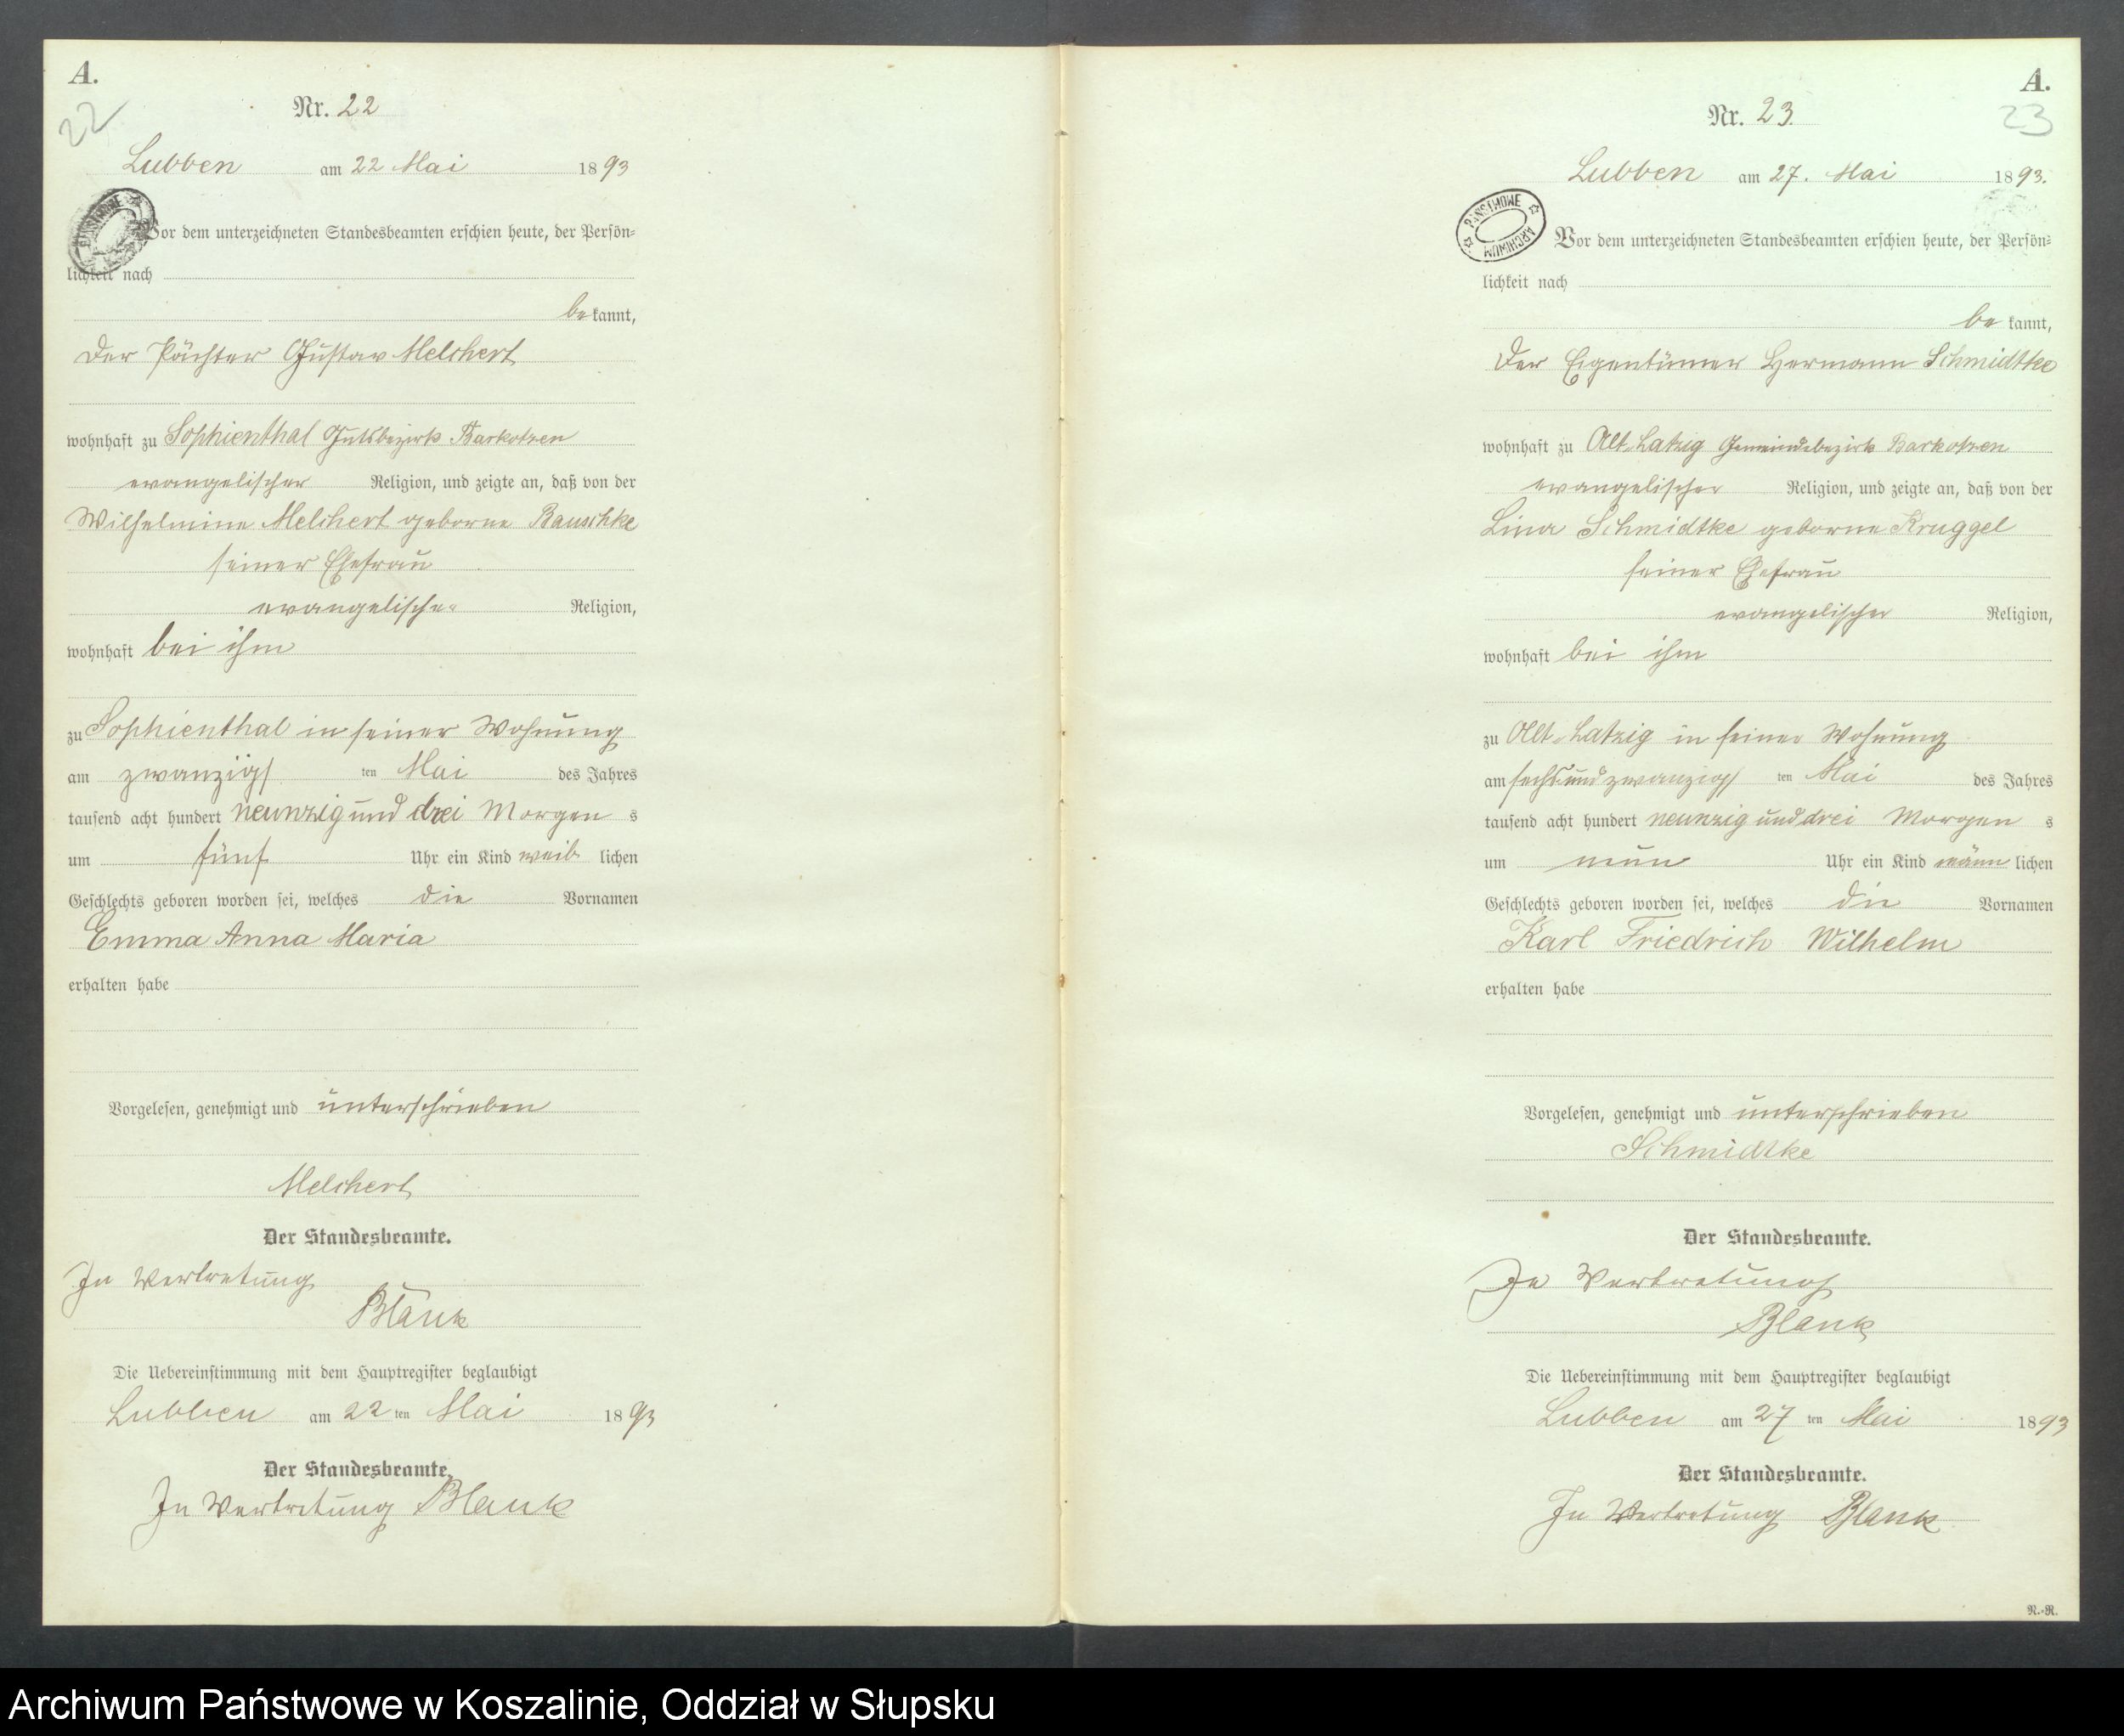 A.
22
Nr. 22
Lubben am 22 Mai 1893
Vor dem unterzeichneten Standesbeamten erschien heute, der Persön=
lichkeit nach
bekannt,
der Pächter Gustav Melchert
wohnhaft zu Sophienthal Gutsbezirk Barkotzen
evangelischer Religion, und zeigte an, daß von der
Wilhelmine Melchert geborne Bauschke
seiner Ehefrau
evangelischer Religion,
wohnhaft bei ihm
zu Sophienthal in seiner Wohnung
am zwanzigsten Mai des Jahres
tausend acht hundert neunzig und drei Morgens
um fünf Uhr ein Kind weiblichen
Geschlechts geboren worden sei, welches die Vornamen
Emma Anna Maria
erhalten habe
Vorgelesen, genehmigt und unterschrieben
Melchert
Der Standesbeamte.
In Vertretung
Blank
Die Uebereinstimmung mit dem Hauptregister beglaubigt
Lubben am 22ten Mai 1893
Der Standesbeamte.
In Vertretung Blank
A.
23
Nr. 23.
Lubben am 27. Mai 1893.
PAŃSTWOWE ARCHIWUM
Vor dem unterzeichneten Standesbeamten erschien heute, der Persön=
lichkeit nach
bekannt,
der Eigentümer Hermann Schmidtke
wohnhaft zu Alt-Latzig Gemeindebezirk Barkotzen
evangelischer Religion, und zeigte an, daß von der
Lina Schmidtke geborne Kruggel
seiner Ehefrau
evangelischer Religion,
wohnhaft bei ihm
zu Alt-Latzig in seiner Wohnung
am sechsundzwanzigsten Mai des Jahres
tausend acht hundert neunzig und drei Morgens
um neun Uhr ein Kind männlichen
Geschlechts geboren worden sei, welches die Vornamen
Karl Friedrich Wilhelm
erhalten habe
Vorgelesen, genehmigt und unterschrieben
Schmidtke
Der Standesbeamte.
In Vertretung
Blank
Die Uebereinstimmung mit dem Hauptregister beglaubigt
Lubben am 27ten Mai 1893
Der Standesbeamte.
In Vertretung Blank
R.-R.
Archiwum Państwowe w Koszalinie, Oddział w Słupsku